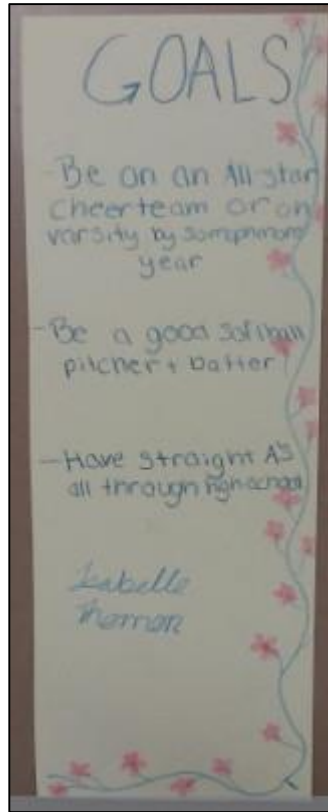 GOALS
-Be on an All-star
cheer team or on
varsity by
year
-Be a good softball
pitcher + batter
-Have straight A's
all through high school
Isabelle